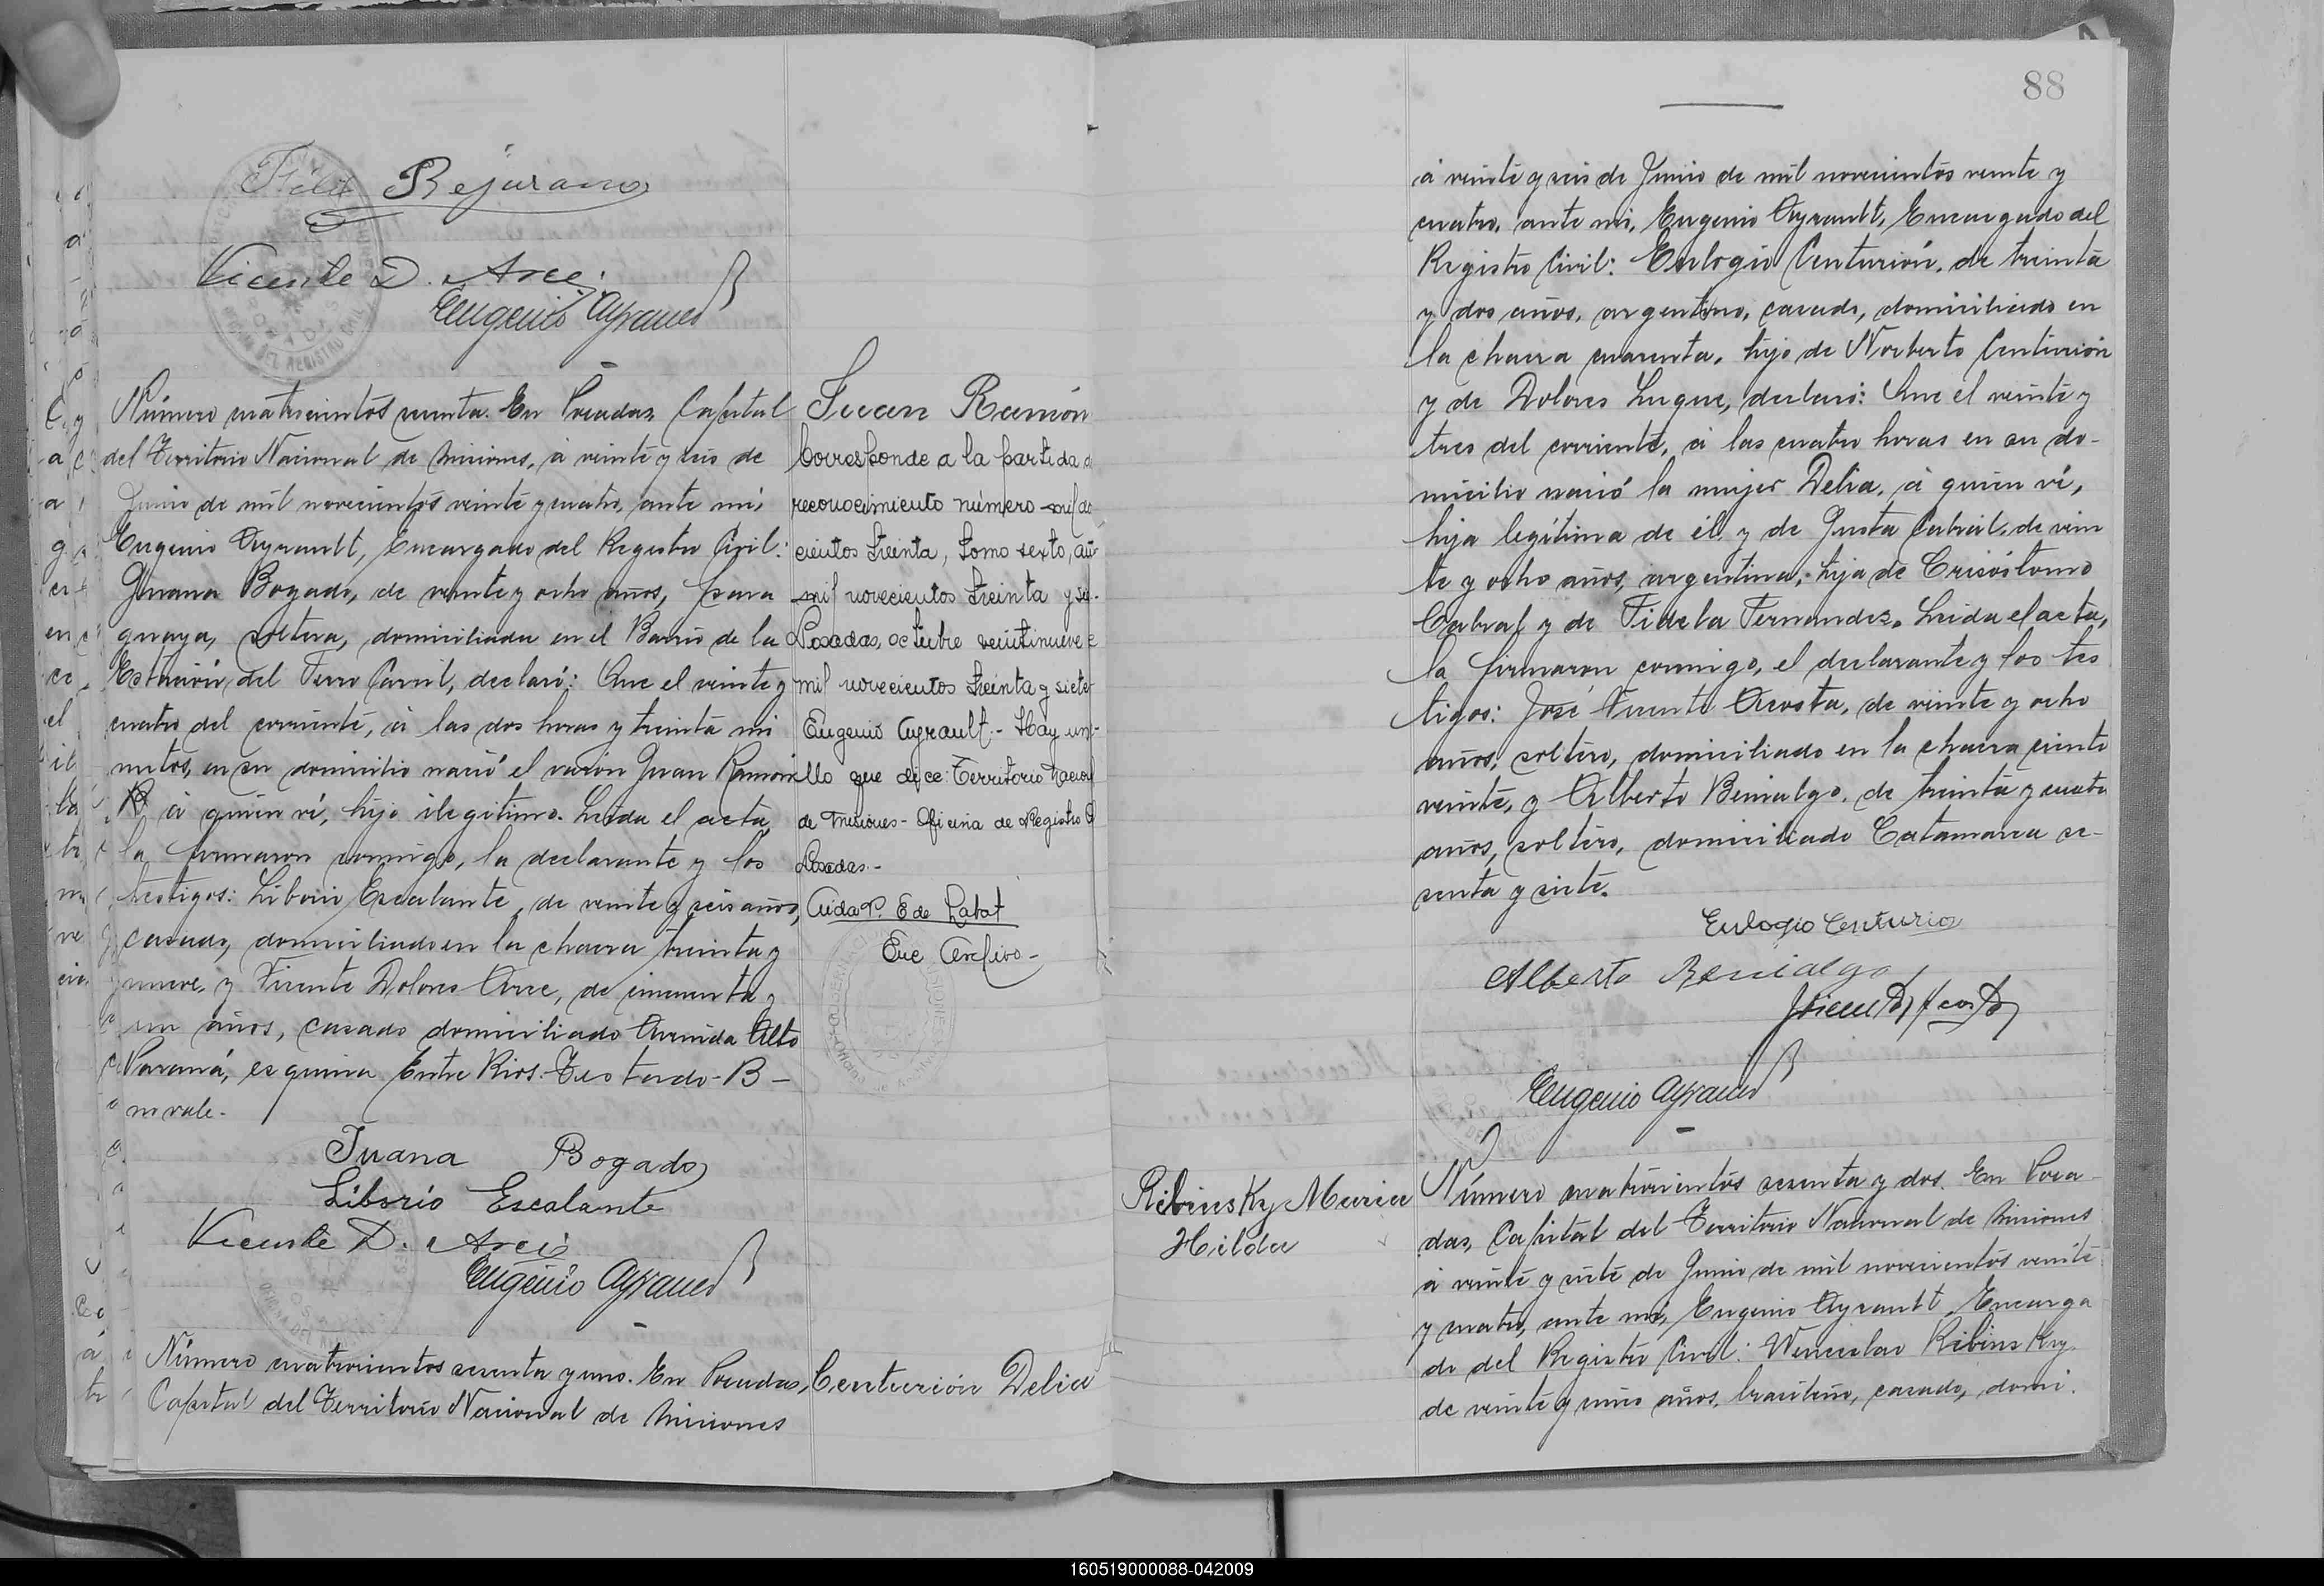 Bejarano
Vicente D. Arce
Eugenio Ayrault
Número cuatrocientos sesenta. En Posadas, Capital
del Territorio Nacional de Misiones, á veinte y seis de
Junio de mil novecientos veinte y cuatro, ante mi,
Eugenio Ayrault, Encargado del Registro Civil:
Juana Bogado, de veinte y ocho años, para
guaya, soltera, domiciliada en el Barrio de la
Estación del Ferro Carril, declaró: Que el veinte y
cuatro del corriente, á las dos horas y treinta mi
nutos, en su domicilio nació el varon Juan Ramón
B á quien ví, hijo ilegitimo. Leida el acta,
la firmaron conmigo, la declarante y los
testigos: Liborio Escalante, de veinte y seis años,
casado, domiciliado en la chacra treinta y
nueve, y Vicente Dolores Arce, de cincuenta y
un años, casado domiciliado Avenida Alto
Paraná, esquina Entre Rios. Testado-B-
no vale.
Juana Bogado
Liborio Escalante
Vicente D. Arce
Eugenio Ayrault
Número cuatrocientos sesenta y uno. En Posadas,
Capital del Territorio Nacional de Misiones
Juan Ramón
Corresponde a la partida d
reconocimiento número mil do
cientos treinta, tomo sexto, añ
mil novecientos treinta y sie-
Posadas, octubre veintinueve d
mil novecientos treinta y siete
Eugenio Ayrault.- Hay un se-
llo que dice: Territorio Nacional
de Misiones - Oficina de Registro C
Posadas.-
Aida P. E de Labat
Enc Archivo-
Centurión Delia
88
á veinte y seis de Junio de mil novecientos veinte y
cuatro, ante mi, Eugenio Ayrault, Encargado del
Registro Civil: Eulogio Centurión, de treinta
y dos años, argentino, casado, domiciliado en
la chacra cuarenta, hijo de Norberto Centurión
y de Dolores Luque, declaró: Que el veinte y
tres del corriente, á las cuatro horas en su do-
micilio nació la mujer Delia, á quien ví,
hija legítima de él, y de Justa Cabral, de vein
te y ocho años, argentina, hija de Crisóstomo
Cabral y de Fidela Fernandez. Leida el acta,
la firmaron conmigo, el declarante y los tes
tigos: José Vicente Acosta, de veinte y ocho
años, soltero, domiciliado en la chacra ciento
veinte, y Alberto Benialgo, de treinta y cuatro
años, soltero, domiciliado Catamarca se-
senta y siete.
Eulogio Centurion
Alberto Benialgo
Eugenio Ayrault
Ribinsky Maria
Hilda
Número cuatrocientos sesenta y dos. En Posa-
das, Capital del Territorio Nacional de Misiones
á veinte y siete de Junio de mil novecientos veinte
y cuatro, ante mi, Eugenio Ayrault, Encarga
do del Registro Civil: Wenceslao Ribinsky,
de veinte y cinco años, brasileño, casado, domi.
160519000088-042009